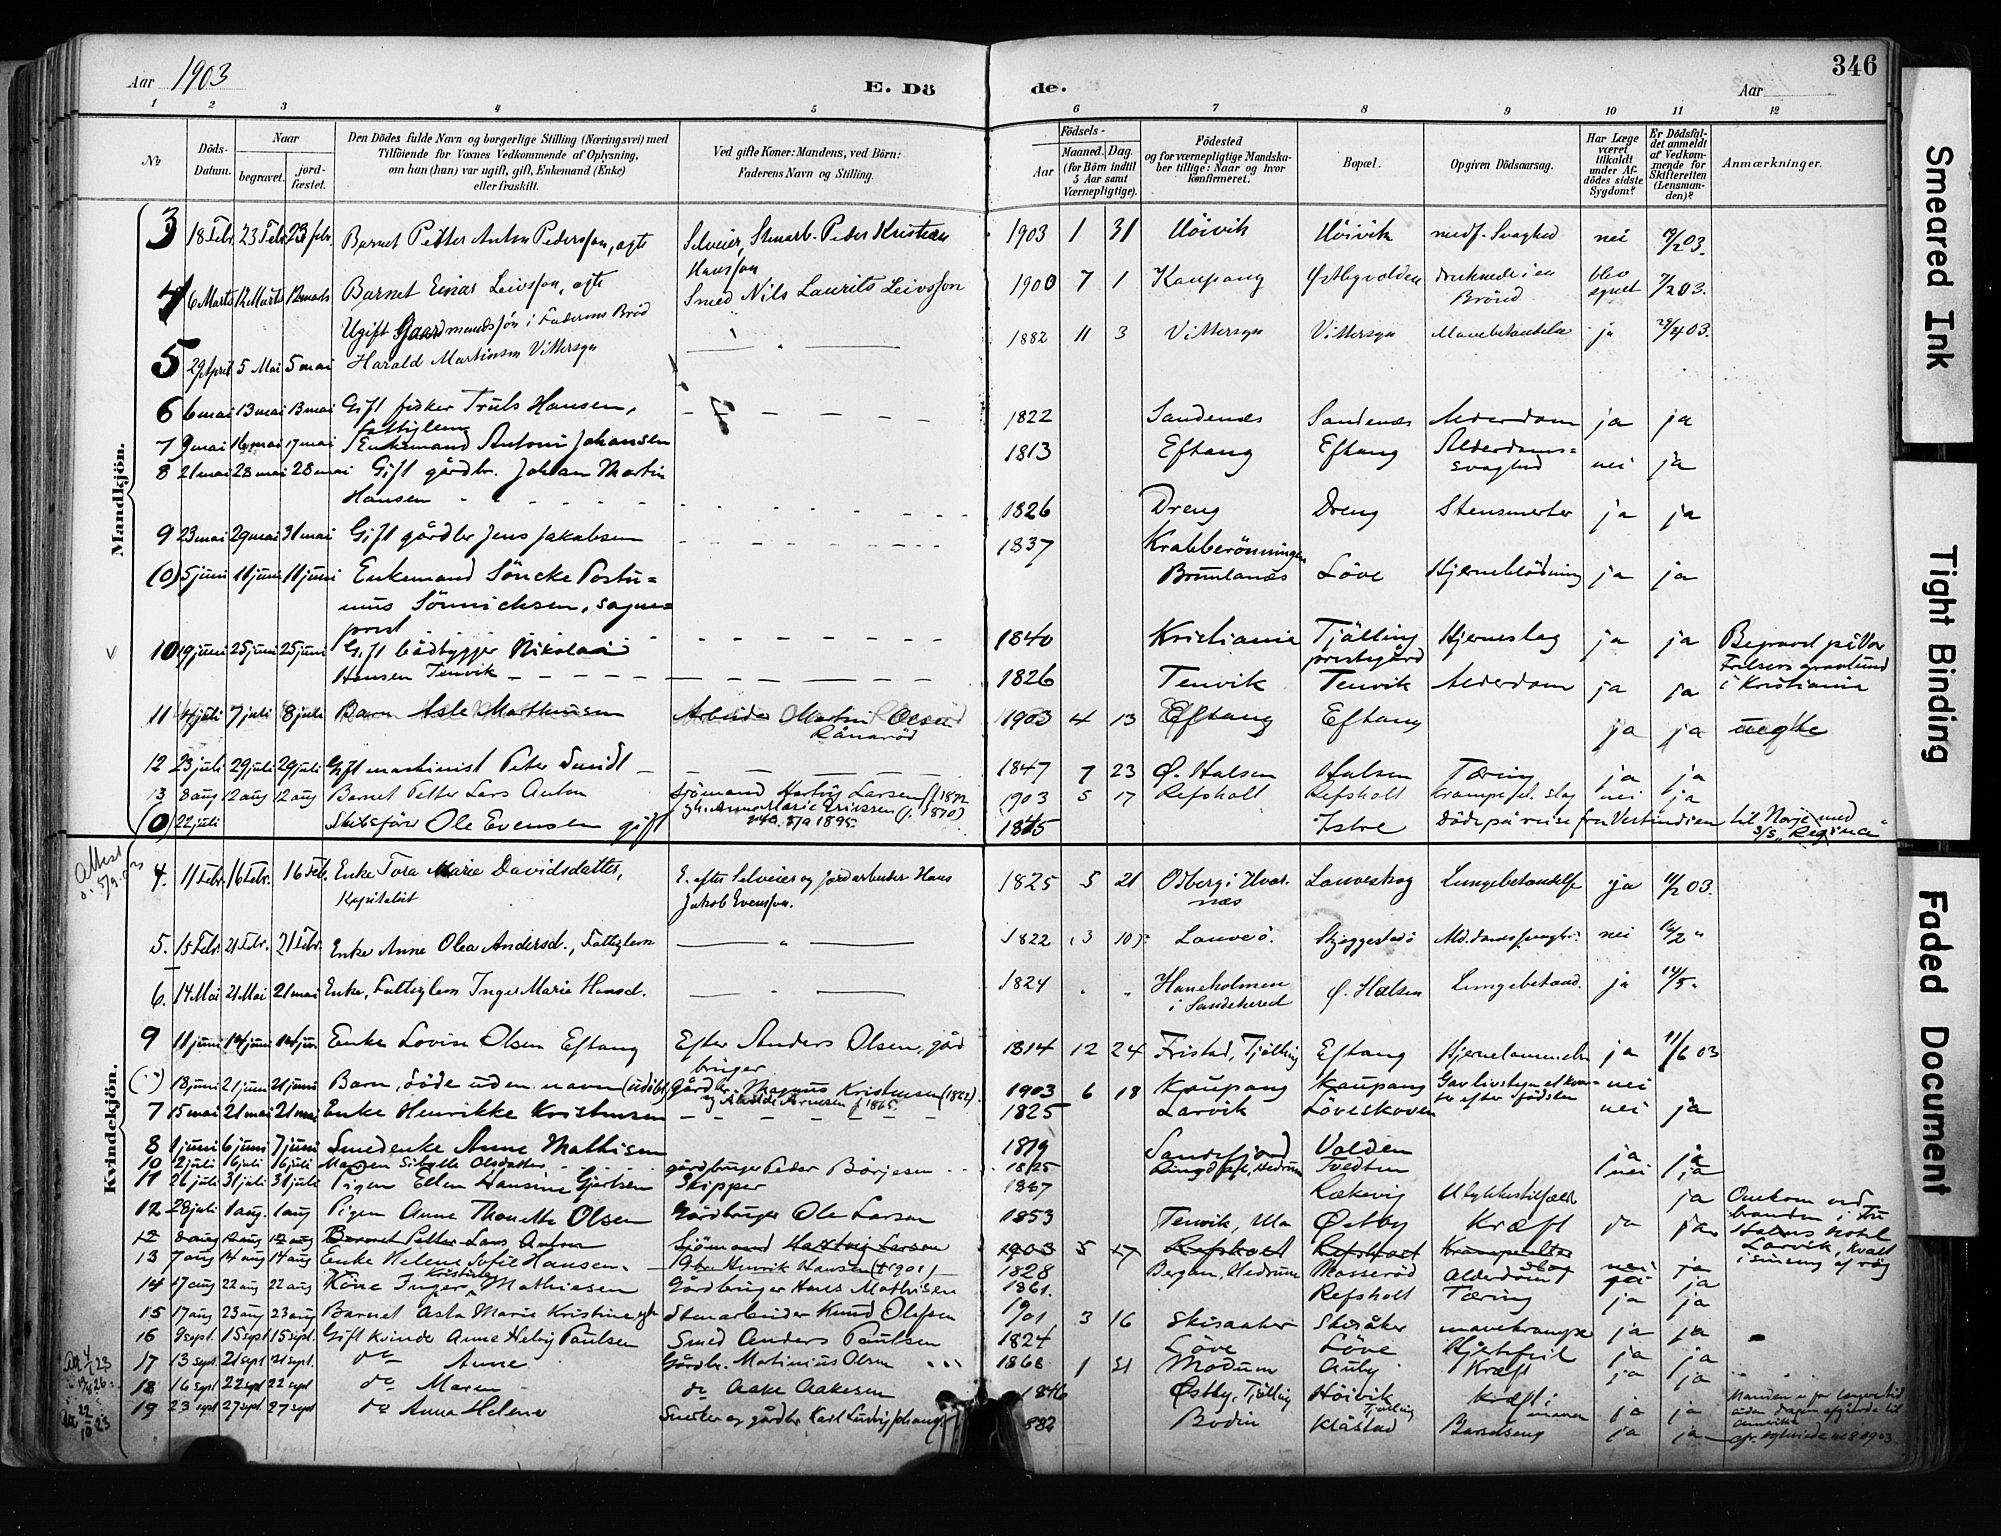 Aar 1903
E. Dö
de.
Aar
346
1 2 3 4 5 6 7 8 9 10 11 12
No
Döds-Datum.
Naar
begravet.
jord-fæstet.
Den Dödes fulde Navn og borgerlige Stilling (Næringsvei) med
Tilföiende for Voxnes Vedkommende af Oplysning,
om han (hun) var ugift, gift, Enkemand (Enke)
eller fraskilt.
Ved gifte Koner: Mandens, ved Börn:
Faderens Navn og Stilling.
Födsels-
Aar
Maaned. Dag.
(for Börn indtil
5 Aar samt
Værnepligtige).
Födested
og for værnepligtige Mandska-
ber tillige: Naar og hvor
konfirmeret.
Bopæl.
Opgiven Dödsaarsag.
Har Læge
været
tilkaldt
under Af-
dödes sidste
Sygdom?
Er Dödsfal-
det anmeldt
af Vedkom-
mende for
Skifteretten
(Lensman-
den)?
Anmærkninger.
Mandkjön.
3 18 Febr. 23 Febr. 23 febr. Barnet Petter Anton Pederssøn, ægte Selveier, Stenarb. Peder Kristian Hanssøn 1903 1 31 Höivik Höivik medf. Svaghed nei 19/2 03.
4 6 Marts 12 Marts 12 marts Barnet Einar Leivssøn, ægte Smed Nils Laurits Leivssøn 1900 7 1 Kaupang Østbyvolden druknede i en Brönd blev synet 7/2 03.
5 29 April 5 Mai 5 mai Ugift Gaardmandssøn i Faderens Bröd Harald Martinsen Vittersyn 1882 11 3 Vittersyn Vittersyn Mavebetændelse ja 29/4 03.
6 6 mai 13 mai 13 mai Gift fisker Truls Hansen, fattiglem 1822 Sandenæs Sandenæs Alderdom ja ja
7 9 mai 16 mai 17 mai Enkemand Anton Johansen 1813 Eftang Eftang Alderdoms=svaghed nei ja
8 21 mai 28 mai 28 mai Gift gårdbr. Johan Martin Hansen 1826 Dreng Dreng Stensmerter ja ja
9 23 mai 29 mai 31 mai Gift gårdbr Jens Jakobsen 1837 Krabberönningen Brunlanæs Löve Hjerneblödning ja ja
(0) 5 juni 11 juni 11 juni Enkemand Söncke Postu=mus Sönnichsen, sogne=prest 1840 Kristiania Tjölling prestegård Hjerneslag ja ja Begravd på Vor Frelsers gravlund i Kristiania
10 19 juni 25 juni 25 juni Gift bådbygger Nikolai Hansen Tenvik 1826 Tenvik Tenvik Alderdom ja ja
11 4 juli 7 juli 8 juli Barn Asle Mathiusen Arbeider Martin Olsen Rånerød 1903 4 13 Eftang Eftang ja ja uegte
12 23 juli 29 juli 29 juli Gift maskinist Peter Smidt 1847 7 23 Ø. Halsen Halsen Tæring ja ja
13 8 aug 12 aug 12 aug Barnet Petter Lars Anton Sjömand Hartvig Larsen (f. 1872 1903 5 17 Refsholt Refsholt Krampe el. slag nei ja
(0) 22 juli Skibsförer Ole Evensen gift 1845 Istre Döde på reise fra Vestindien til Norje med S/S. "Regina"
Kvindekjön.
4. 11 Febr. 16 Febr. 16 Feb. Enke Tora Marie Davidsdatter, Kapitalist E. efter Selveier og Jordarbeider Hans Jakob Evenssøn. 1825 5 21 Odberg i Hvarnæs Lauveskog Lungebetændelse ja 11/2 03.
5. 15 Febr. 21 Febr. 21 Febr. Enke Anne Olea Andersd., Fattiglem 1822 3 10 Lauvesø. Skjeggestadø nei 16/2 "
6. 14 Mai 21 Mai 21 mai Enke, Fattiglem Inger Marie Hansd. 1824 Haneholmen i Sandeherred Ø. Halsen Lungebetænd. ja 14/5 "
9 11 juni 14 juni 14 jun. Enke Lovise Olsen Eftang Efter Anders Olsen, gård bruger 1814 12 24 Fristad, Tjölling Eftang Hjernelammelse ja 11/6 03
18 juni 21 juni 21 juni Barn, döde uden navn (udöbt) Gårdbr. Magnus Kristensen (1862) 1903 6 18 Kaupang Kaupang nei
7 15 mai 21 mai 21 mai Enke Henrikke Kristensen 1825 Larvik Löveskoven nei ja
8 1 juni 6 juni 7 juni Smedenke Anne Mathisen 1819 Sandefjord Valden ja ja
10 12 juli 16 juli 16 juli Maren Sibylle Olsdatter gårdbruger Peder Börjesen 1825 Hedrum Tvedten nei ja
11 26 juli 31 juli 31 juli Pigen Ellen Hansine Gjertsen Skipper 1887 Rækevig Ulykkestilfælde ja Omkom ved branden i Fru Holms Hotel Larvik, kvalt i sin seng af røg
12 28 juli 1 aug. 1 aug Pigen Anne Thonette Olsen Gårdbruger Ole Larsen 1853 Tenvik, Ula Østby Kræft ja ja
12 8 aug 12 aug 12 aug Barnet Petter Lars Anton Sjömand Hartvig Larsen 1903 5 17 Refsholt Refsholt Krampe eller slag nei
13 7 aug 14 aug 14 aug Enke Helene Sofie Hansen Henrik Hansen († 1901) 1828 Bergan, Hedrum Masseröd Alderdom ja
14 17 aug 22 aug 22 aug Kone Inger Kristine Mathiesen Gårdbruger Hans Mathisen 1861. Refsholt Tæring ja ja
15 17 aug 23 aug 23 aug Barnet Asta Marie Kristine Stenarbeider Knud Olefsen 19/01 3 16 Skisaaker Skisåker mavekrampe ja ja
16 9 sept. 15 sept 15 sept. Gift kvinde Anne Helvig Paulsen Smed Anders Paulsen 1824 Löve Löve Hjertefeil ja ja
17 13 sept. 21 sept 21 sept. do Anne Gårdbr. Matinius Olsen 1868 1 31 Modum Auby Kræft ja ja
18 16 sept 22 sept 22 sept do Maren do Aake Aakesen 1846 Østby, Tjölling Höivik Tjölling Kræft i maven ja ja
19 23 sept 27 sept 27 sept do Anna Helene Smed og gårdbr Karl Ludvig Johansen 882 Bodin Klåstad Barselseng ja ja
Smeared Ink
Tight Binding
Faded Document